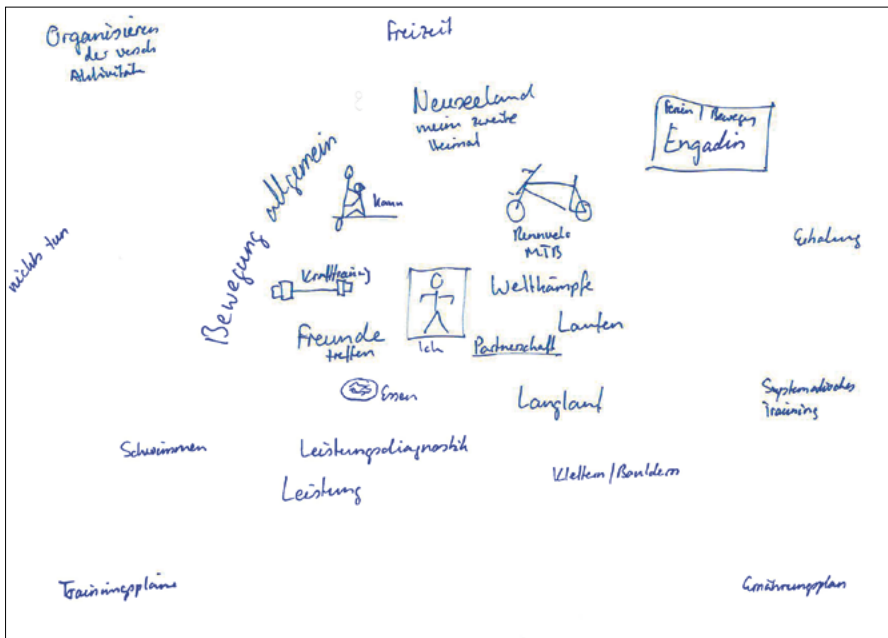 Organisieren
der versch
Aktivität
Freizeit
Neuseeland
mein zweite
Heimat
Ferien / Bewegung
Engadin
Bewegung allgemein
Kanu
Rennvelo
MTB
Erholung
nichts tun
Krafttraining
Wettkämpfe
Laufen
Freunde
treffen
Ich
Partnerschaft
Essen
Langlauf
Systematisches
Training
Schwimmen
Leistungsdiagnostik
Leistung
Klettern/Bouldern
Trainingspläne
Ernährungsplan